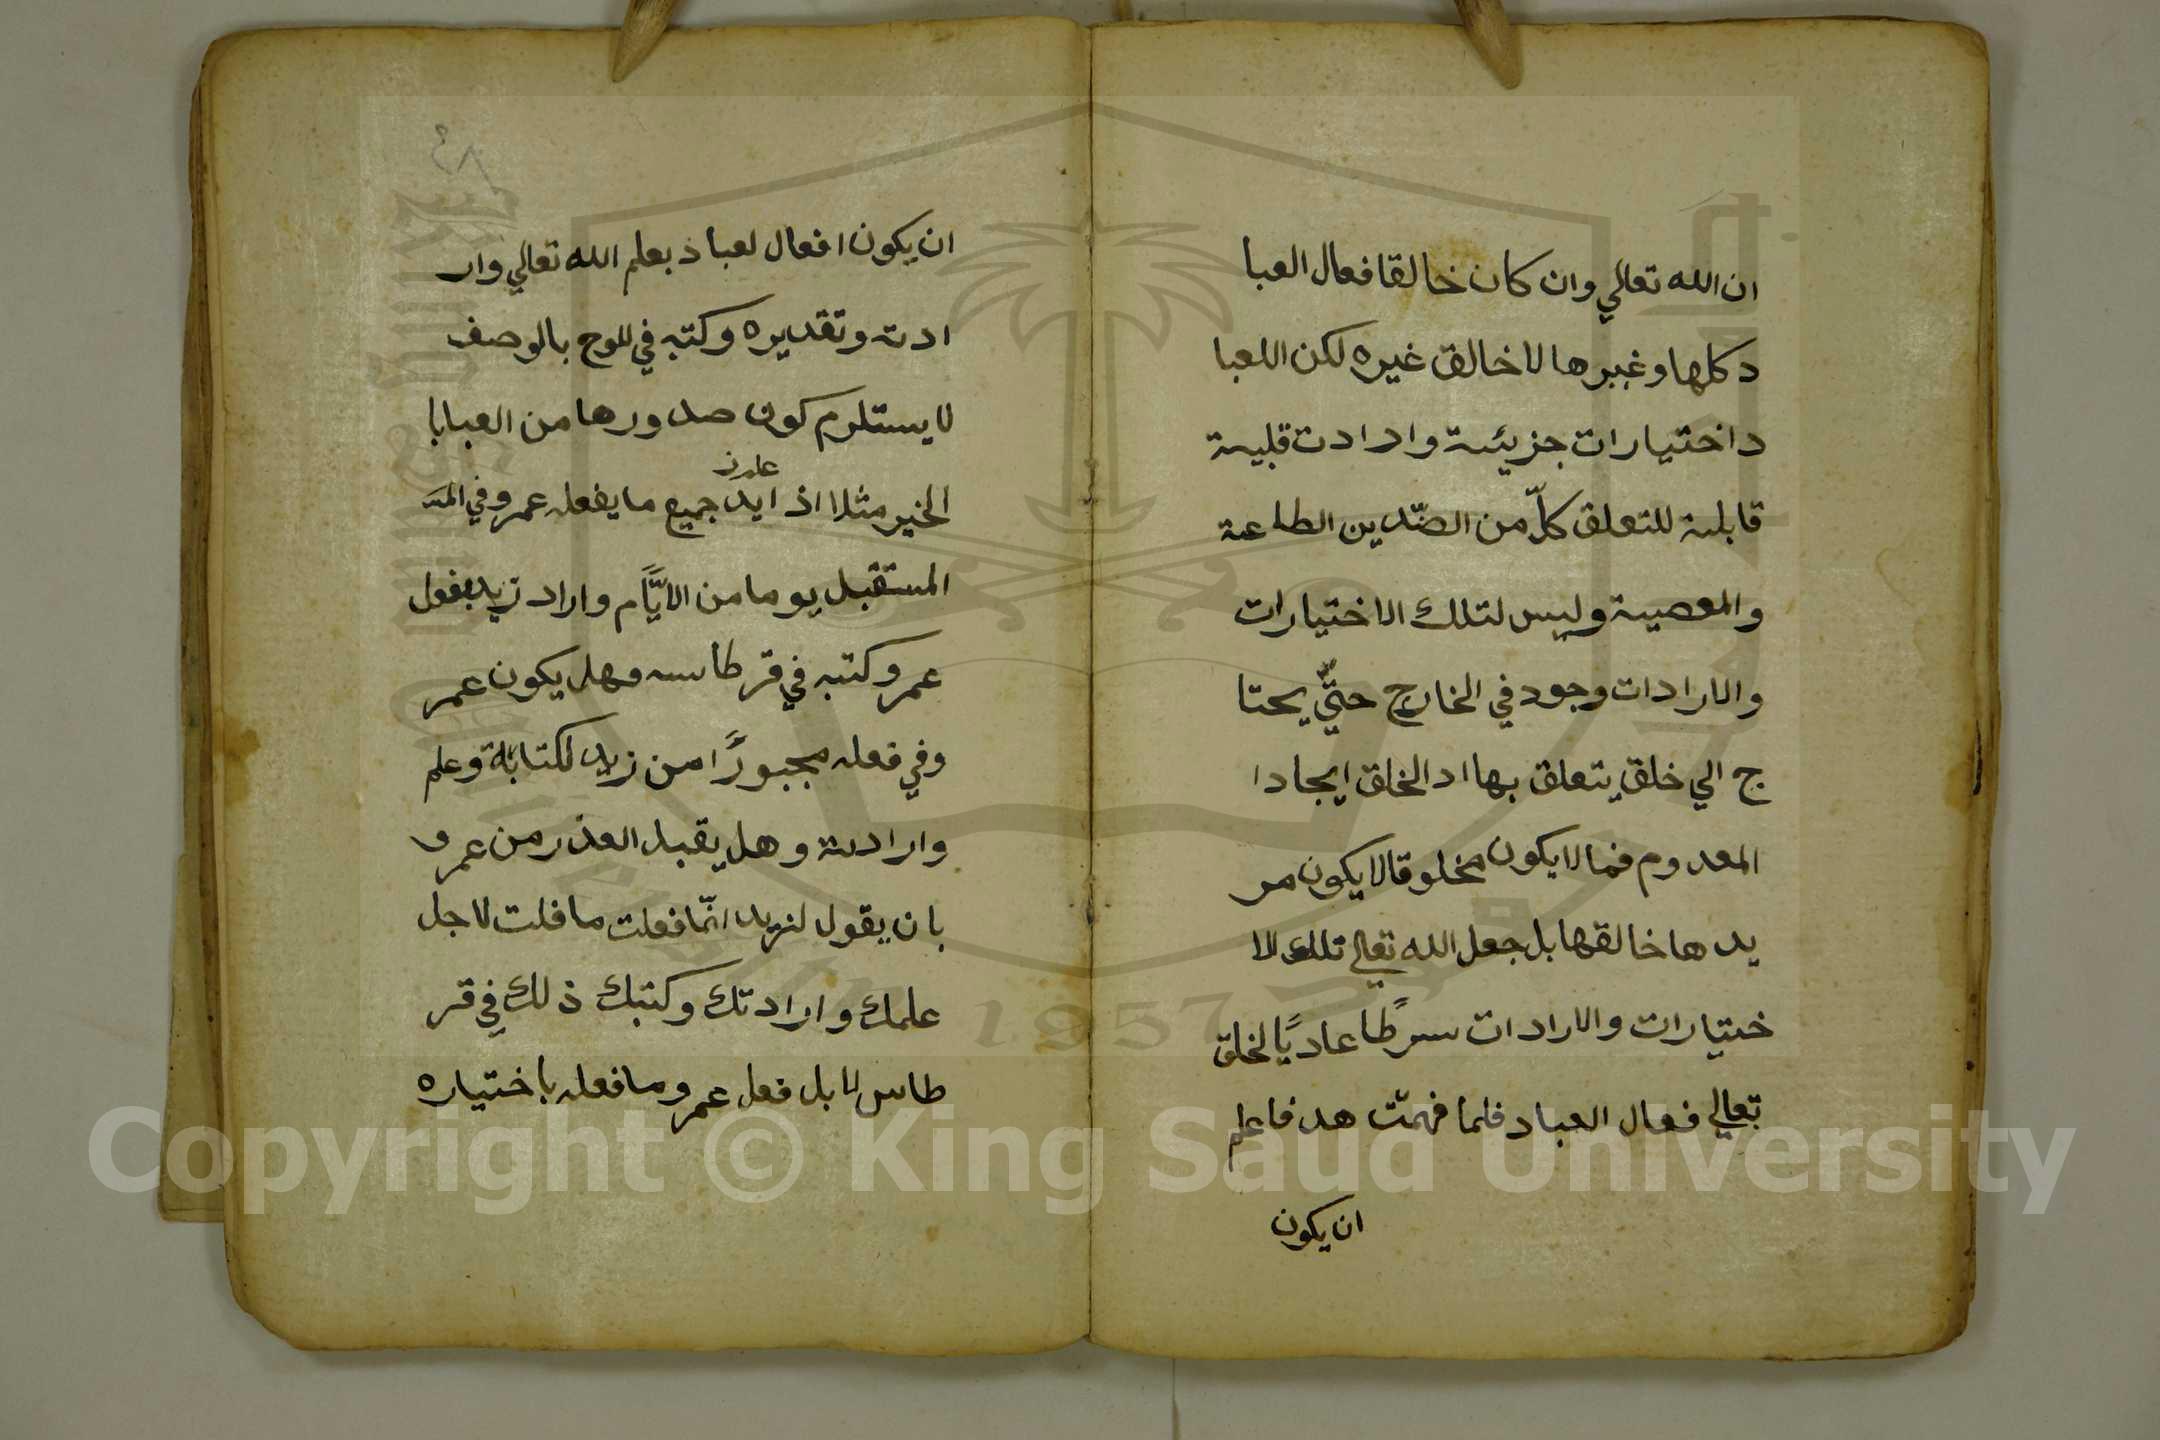 ان الله تعالي وان كان خالقا فعال العبا
د كلها وغيرها لا خالق غيره لكن اللعبا
د اختيارات جزيئة وارادت قلبية
قابلية للتعلق كلّ من الضّدين الطاعة
والمعصية وليس لتلك الاختيارات
والارادات وجود في الخارج حتيّ يحتا
ج الي خلق يتعلق بها اد الخلق ايجادا
المعدوم فما لا يكون مخلوقا لا يكون مر
يدها خالقها بل جعل الله تعالي تلك الا
ختيارات والارادات سرطًا عاديًا لخلق
تعالي فعال العباد فلما فهمت هد فاعلم
ان يكون
٤٨
ان يكون افعال لعباد بعلم الله تعالي وار
ادته وتقديره وكتبه في للوح بالوصف
لا يستلزم كون صدورها من العبابا
الخير مثلا اذا ايد جميع ما يفعله عمرو في المسـ
المستقبل يوما من الايّام واراد زيد بفعل
عمرو كتبه في قرطاسه وهل يكون عمر
و في فعله مجبورًا من زيد لكتابة وعلم
وارادته وهل يقبل العذر من عمرو
بان يقول لزيد انّما فعلت ما فلت لاجل
علمك وارادتك وكتبك ذلك في قر
طاس لا بل فعل عمرو ما فعله باختياره
Copyright © King Saud University
1957